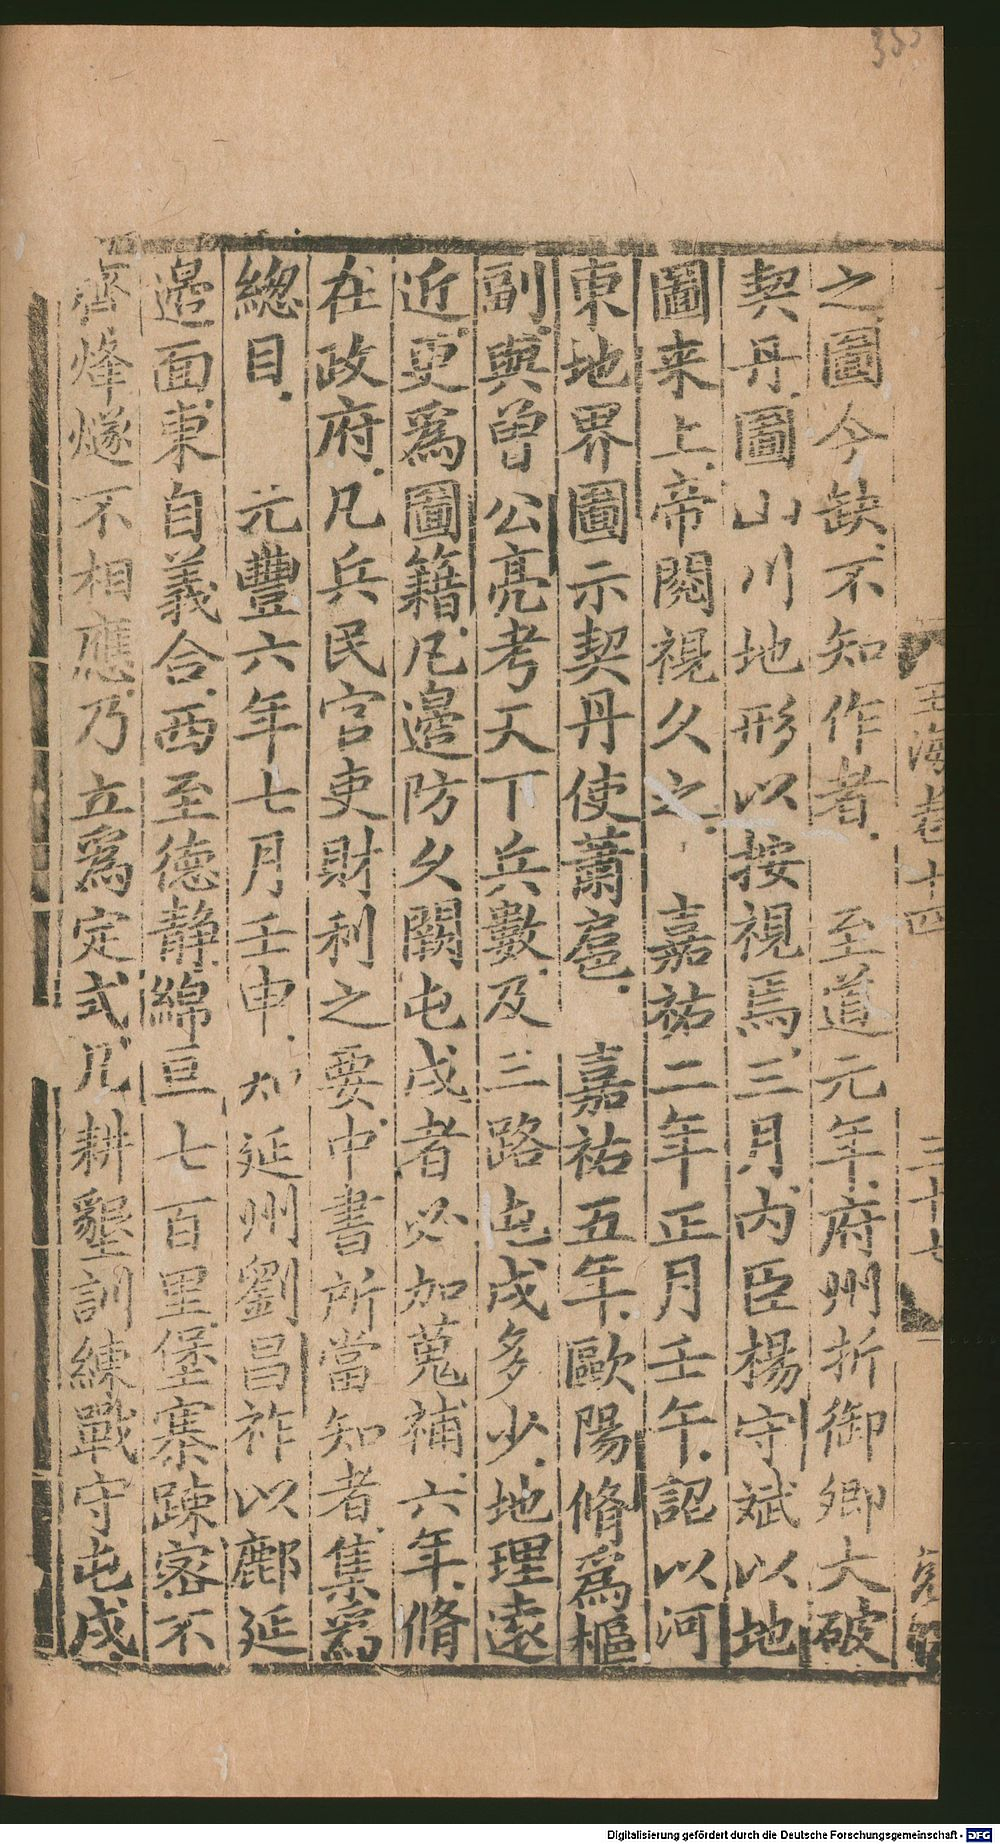 之圖今缺不知作者　至道元年府州折御卿大破
契丹圖山川地形以按視焉三月内臣楊守斌以地
圖来上帝閱視久之　嘉祐二年正月壬午詔以河
東地界圖示契丹使蕭扈　嘉祐五年歐陽脩爲樞
副與曾公亮考天下兵數及三路屯戍多少地理遠
近更爲圖籍凡邊防久闕屯戍者必加蒐補六年脩
在政府凡兵民官吏財利之要中書所當知者集爲
總目　元豐六年七月壬申知延州劉昌祚以鄜延
邊面東自義合西至德靜綿亘七百里堡寨踈密不
齊烽燧不相應乃立爲定式凡耕墾訓練戰守屯戍
玉海卷十四
三十七
355
Digitalisierung gefördert durch die Deutsche Forschungsgemeinschaft - DFG